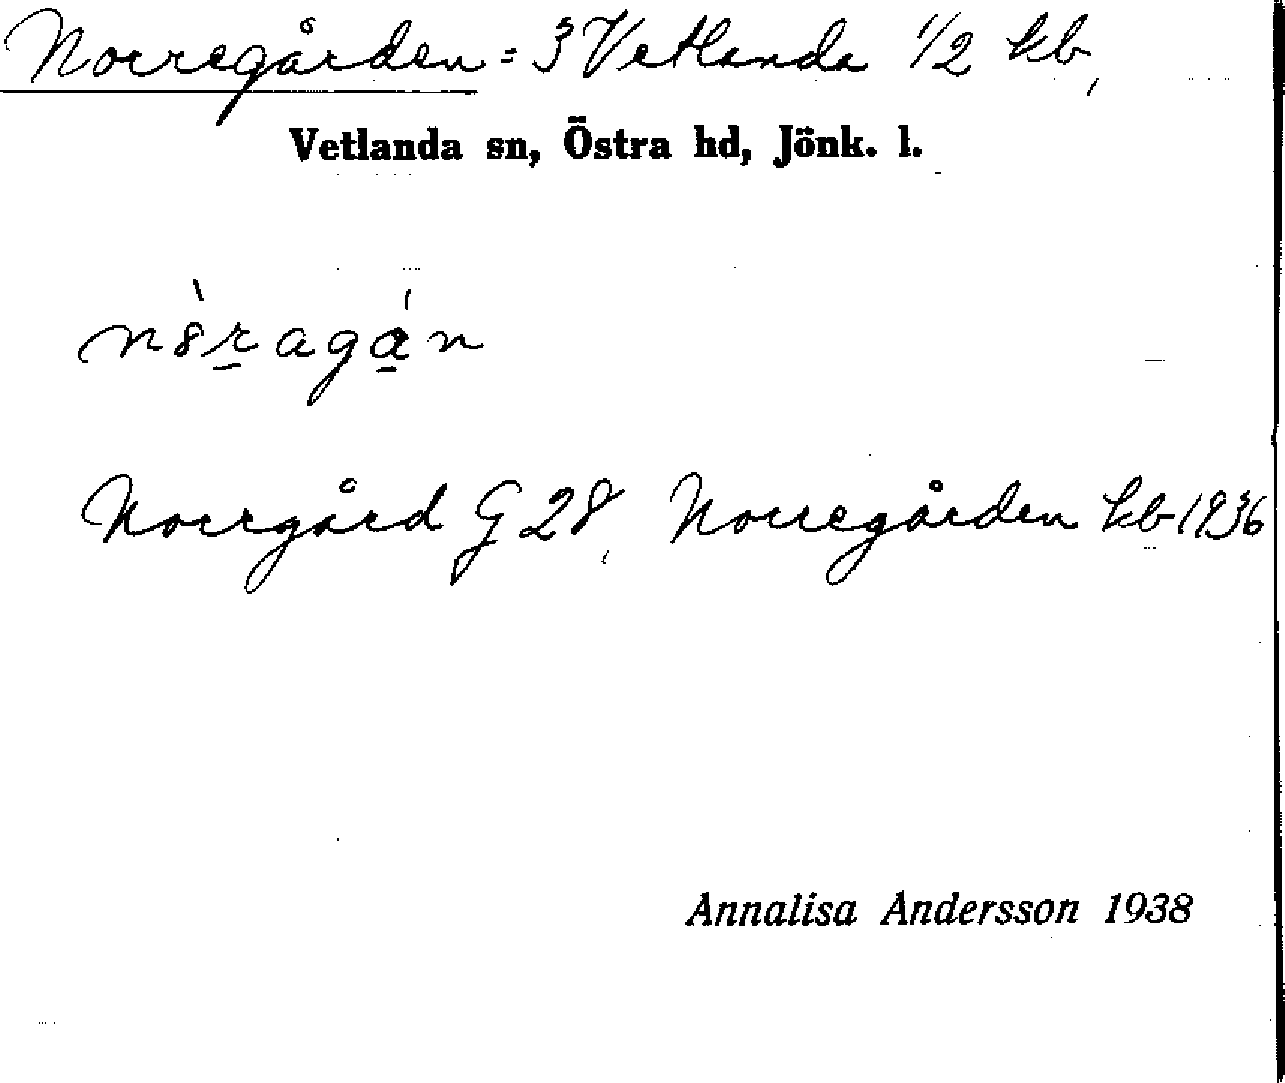 Norregården = 3 Vetlanda 1/2 kb,
Vetlanda sn, Östra hd, Jönk. l.
Norrgård G 28, Norregården kb 1936
Annalisa Andersson 1938